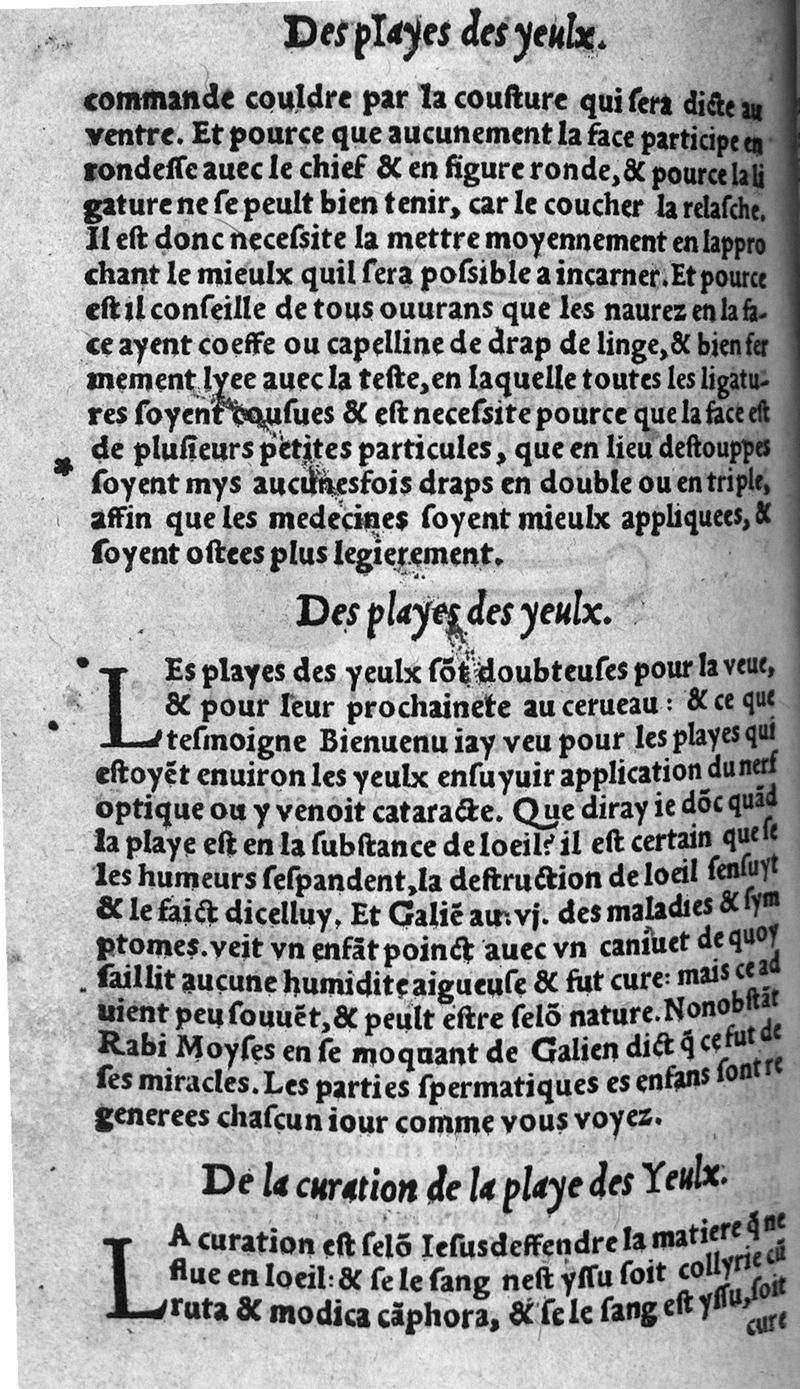 Des playes des yeulx.
commande couldre par la couſture qui ſera dicte au
ventre. Et pource que aucunement la face participe en
rondeſſe auec le chief & en figure ronde, & pource la li
gature ne ſe peult bien tenir, car le coucher la relaſche.
Il eſt donc neceſsite la mettre moyennement en lappro
chant le mieulx quil ſera poſsible a incarner. Et pource
eſt il conſeille de tous ouurans que les naurez en la fa-
ce ayent coeffe ou capelline de drap de linge, & bien fer
mement lyee auec la teſte, en laquelle toutes les ligatu-
res ſoyent couſues & eſt neceſsite pource que la face eſt
de pluſieurs petites particules, que en lieu deſtouppes
ſoyent mys aucunesfois draps en double ou en triple,
affin que les medecines ſoyent mieulx appliquees, &
ſoyent oſtees plus legierement.
Des playes des yeulx.
LEs playes des yeulx ſõt doubteuſes pour la veue,
& pour leur prochainete au cerueau : & ce que
teſmoigne Bienuenu iay veu pour les playes qui
eſtoyẽt enuiron les yeulx enſuyuir application du nerf
optique ou y venoit cataracte. Que diray ie dõc quãd
la playe eſt en la ſubſtance de loeil? il eſt certain que ſe
les humeurs ſeſpandent, la deſtruction de loeil ſenſuyt
& le faict dicelluy. Et Galiẽ au. vj. des maladies & ſym
ptomes. veit vn enfãt poinct auec vn caniuet de quoy
ſaillit aucune humidite aigueuſe & fut cure: mais ce ad
uient peu ſouuẽt, & peult eſtre ſelõ nature. Nonobſtãt
Rabi Moyſes en ſe moquant de Galien dict q̃ ce fut de
ſes miracles. Les parties ſpermatiques es enfans ſont re
generees chaſcun iour comme vous voyez.
De la curation de la playe des Yeulx.
LA curation eſt ſelõ Ieſus deffendre la matiere q̃ ne
flue en loeil: & ſe le ſang neſt yſſu ſoit collyrie cũ
ruta & modica cãphora, & ſe le ſang eſt yſſu, ſoit
cure